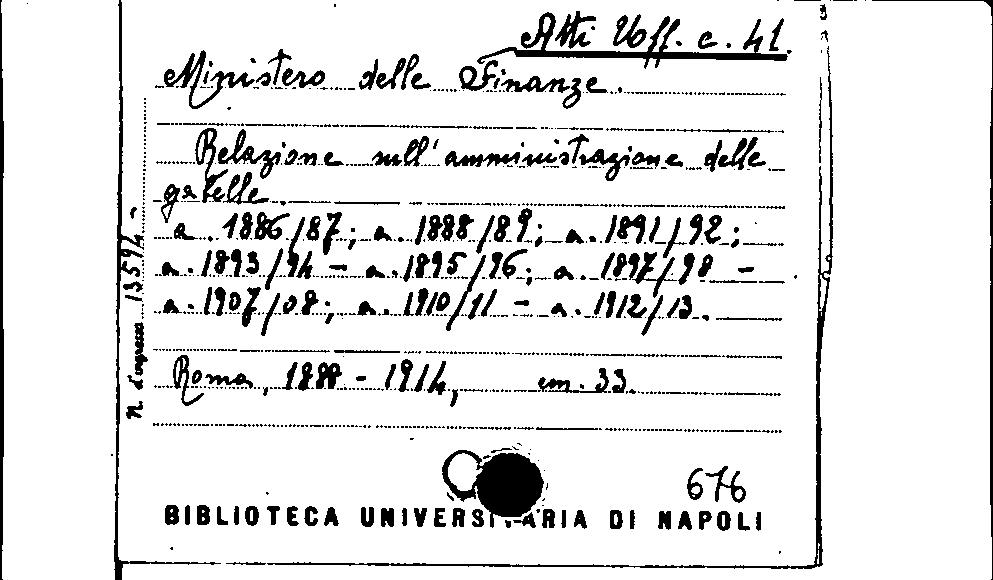 Atti Uff. c. 41.
Ministero delle Finanze.
Relazione sull'amministrazione delle
gabelle.
a. 1886/87; a. 1888/89; a. 1891/92;
a. 1893/94 - a. 1895/96; a. 1897/98 -
a. 1907/08; a. 1910/11 - a. 1912/13.
Roma, 1888 - 1914, cm. 33.
N. d'ingresso 13594-
676
BIBLIOTECA UNIVERSITARIA DI NAPOLI